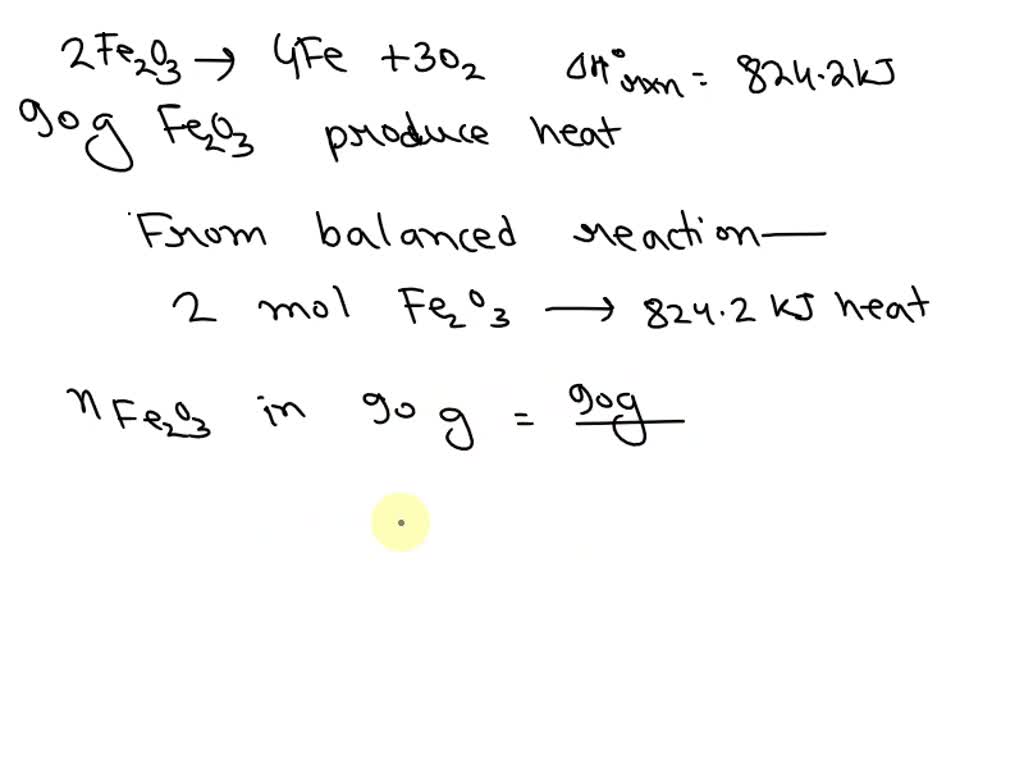 2Fe₂O₃ → 4Fe + 3O₂ ΔH°rxn = 824.2kJ
90g Fe₂O₃ produce heat
From balanced reaction—
2 mol Fe₂O₃ → 824.2 kJ heat
nFe₂O₃ in 90 g = 90g